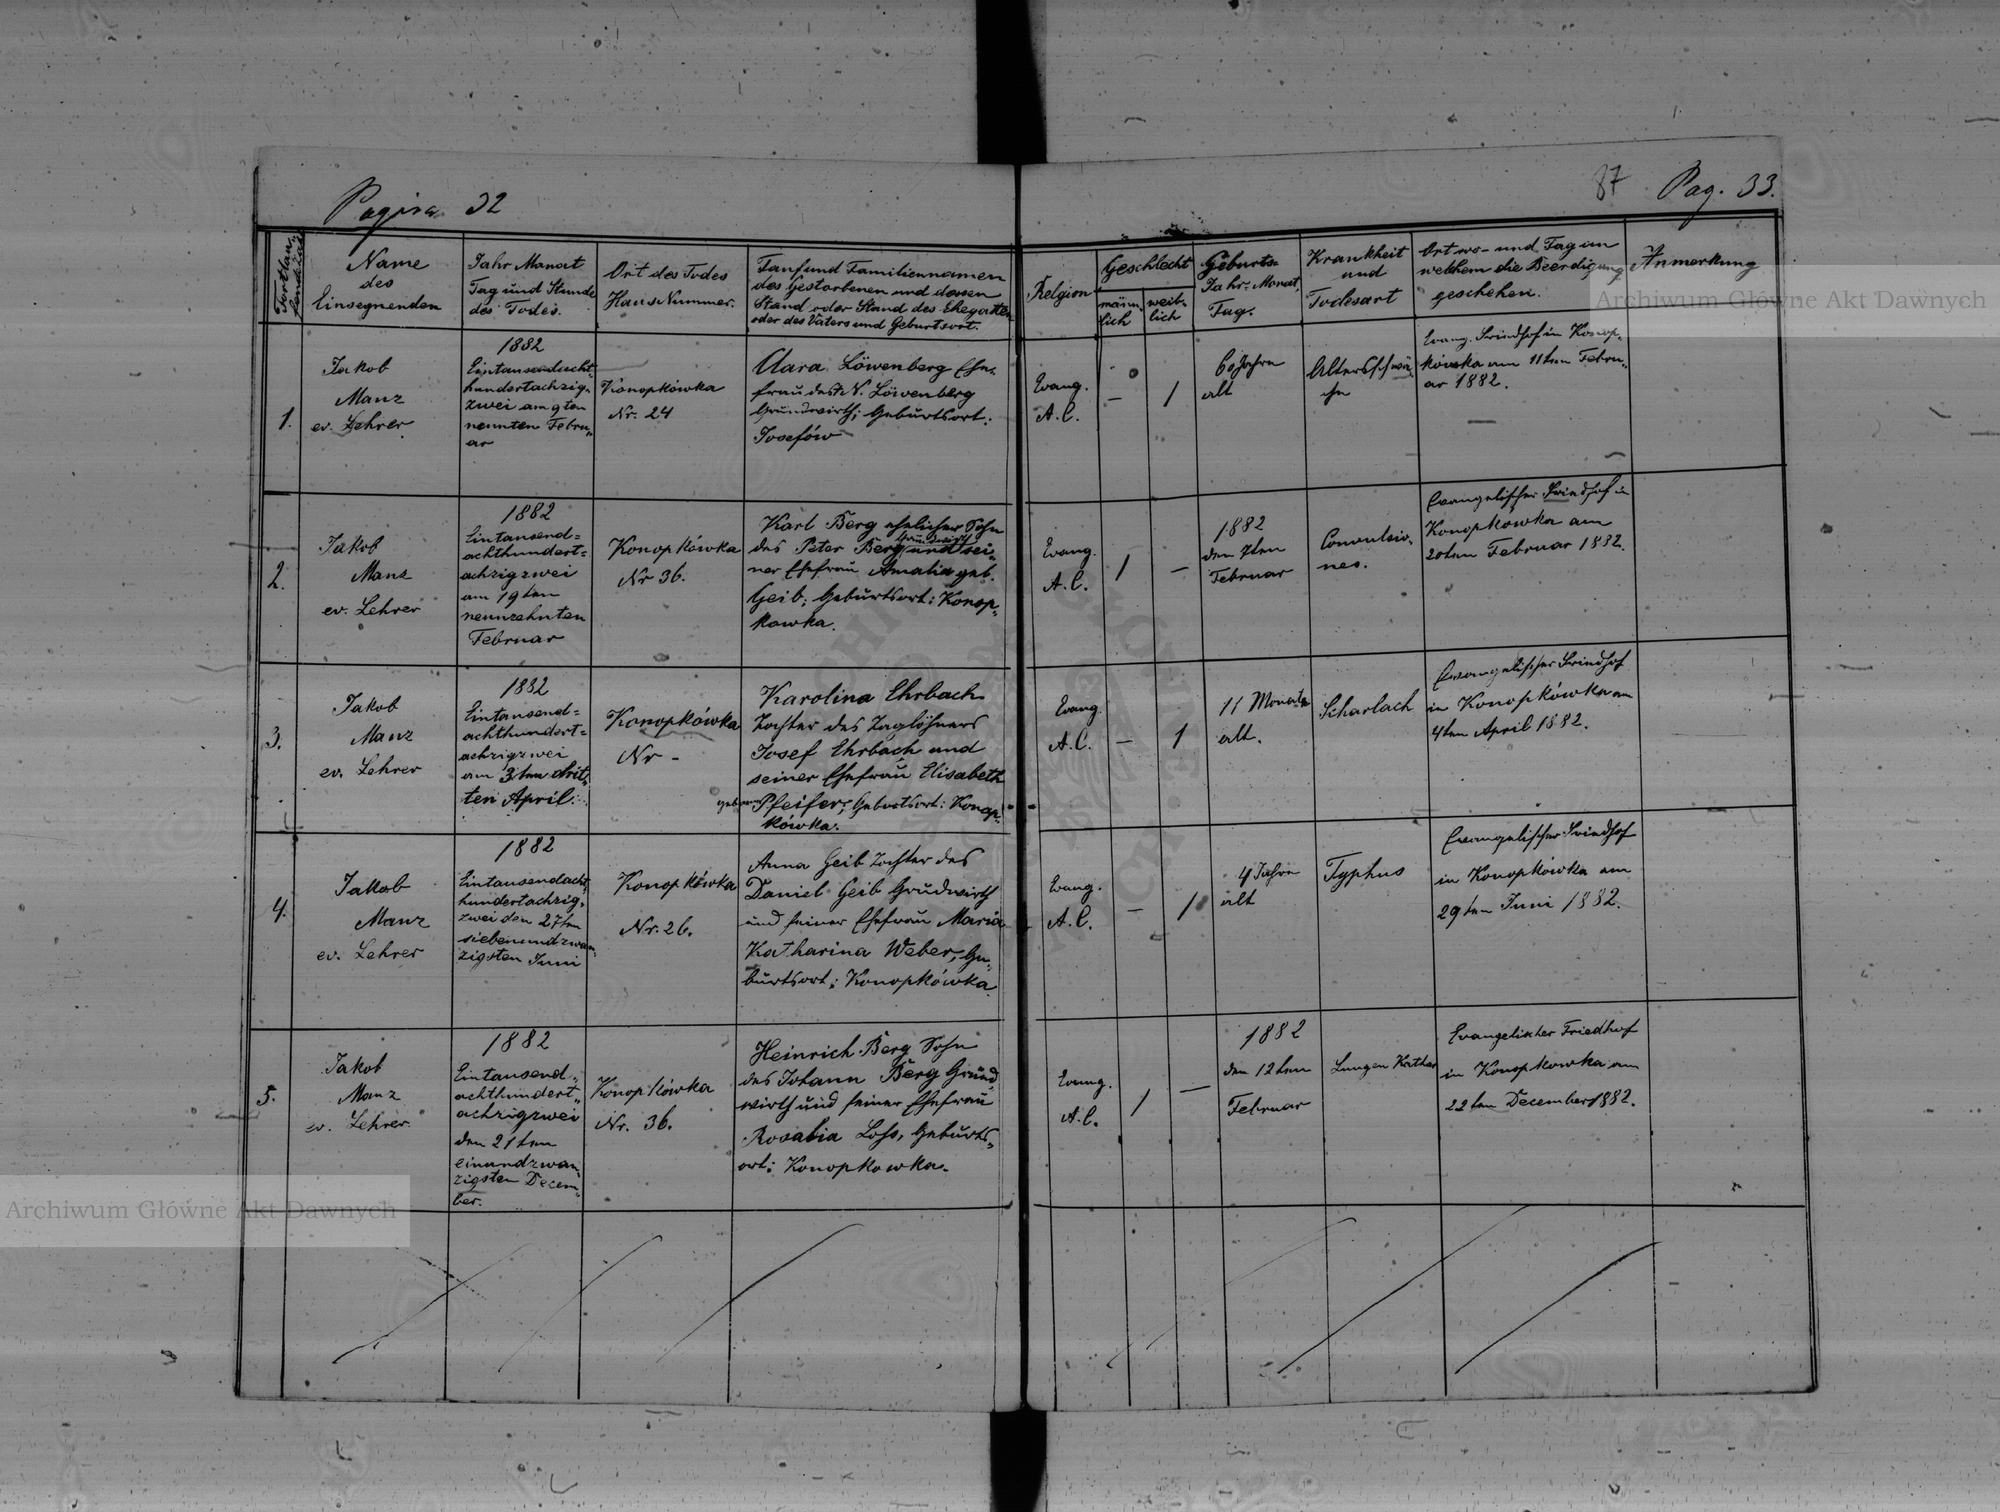 Pagina 32
87 Pag. 33.
Fortlau-
fende Zahl
Name
des
Einsegnenden
Jahr Monat
Tag und Stunde
des Todes.
Ort des Todes
Haus Nummer.
Tauf und Familiennamen
des Gestorbenen und dessen
Stand oder Stand des Ehegatten
oder des Vaters und Geburtsort.
Religion
Geschlecht
männ-
lich
weib-
lich
Geburts-
Jahr, Monat,
Tag.
Krankheit
und
Todesart
Ort wo- und Tag an
welchem die Beerdigung
geschehen.
Anmerkung
1.
Jakob
Manz
ev. Lehrer
1882
Eintausendacht-
hundertachzig-
zwei am 9ten
neunten Febru-
ar
Konopkówka
Nr. 24
Clara Löwenberg Ehe-
frau des N. Löwenberg
Grundwirth; Geburtsort:
Josefów
Evang.
A. C.
-
1
60 Jahre
alt
Altersschwä-
che
Evang. Friedhof in Konop-
kówka am 11ten Febru-
ar 1882.
2.
Jakob
Manz
ev. Lehrer
1882
Eintausend=
achthundert=
achzigzwei
am 19ten
neunzehnten
Februar
Konopkówka
Nr 36.
Karl Berg ehelicher Sohn
des Peter Berg Grundwirth und sei-
ner Ehefrau Amalia geb.
Geib; Geburtsort: Konop-
kowka.
Evang.
A. C.
1
-
1882
den 7ten
Februar
Convulsio-
nes.
Evangelischer Friedhof in
Konopkowka am
20ten Februar 1882.
3.
Jakob
Manz
ev. Lehrer
1882
Eintausend=
achthundert=
achzigzwei
am 3ten drit-
ten April.
Konopkówka
Nr -
Karolina Ehrbach
Tochter des Taglöhners
Josef Ehrbach und
seiner Ehefrau Elisabeth
geborne Pfeifer; Geburtsort: Konop-
kówka.
Evang.
A. C.
-
1
11 Monate
alt.
Scharlach
Evangelischer Friedhof
in Konopkówka am
4ten April 1882.
4.
Jakob
Manz
ev. Lehrer
1882
Eintausendacht-
hundertachzig-
zwei den 27ten
siebenundzwan-
zigsten Juni
Konopkówka
Nr. 26.
Anna Geib Tochter des
Daniel Geib Grudwirth
und seiner Ehefrau Maria
Katharina Weber, Ge-
burtsort; Konopkówka
Evang.
A. C.
-
1
4 Jahre
alt
Typhus
Evangelischer Friedhof
in Konopkówka am
29ten Juni 1882.
5.
Jakob
Manz
ev. Lehrer
1882
Eintausend-
achthundert-
achzigzwei
den 21ten
einundzwan-
zigsten Decem-
ber.
Konopkówka
Nr. 36.
Heinrich Berg Sohn
des Johann Berg Grund
wirth und seiner Ehefrau
Rosalia Lohs, Geburts-
ort; Konopkowka.
Evang.
A. C.
1
-
1882
den 12ten
Februar
Lungen Kathar
Evangelischer Friedhof
in Konopkowka am
22ten December 1882.
Archiwum Główne Akt Dawnych
Archiwum Główne Akt Dawnych